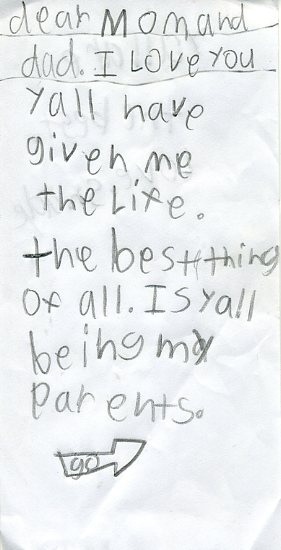 dear Mom and
dad. I Love you
yall have
given me
the Life.
the bestthing
of all. Is yall
being my
parents.
go